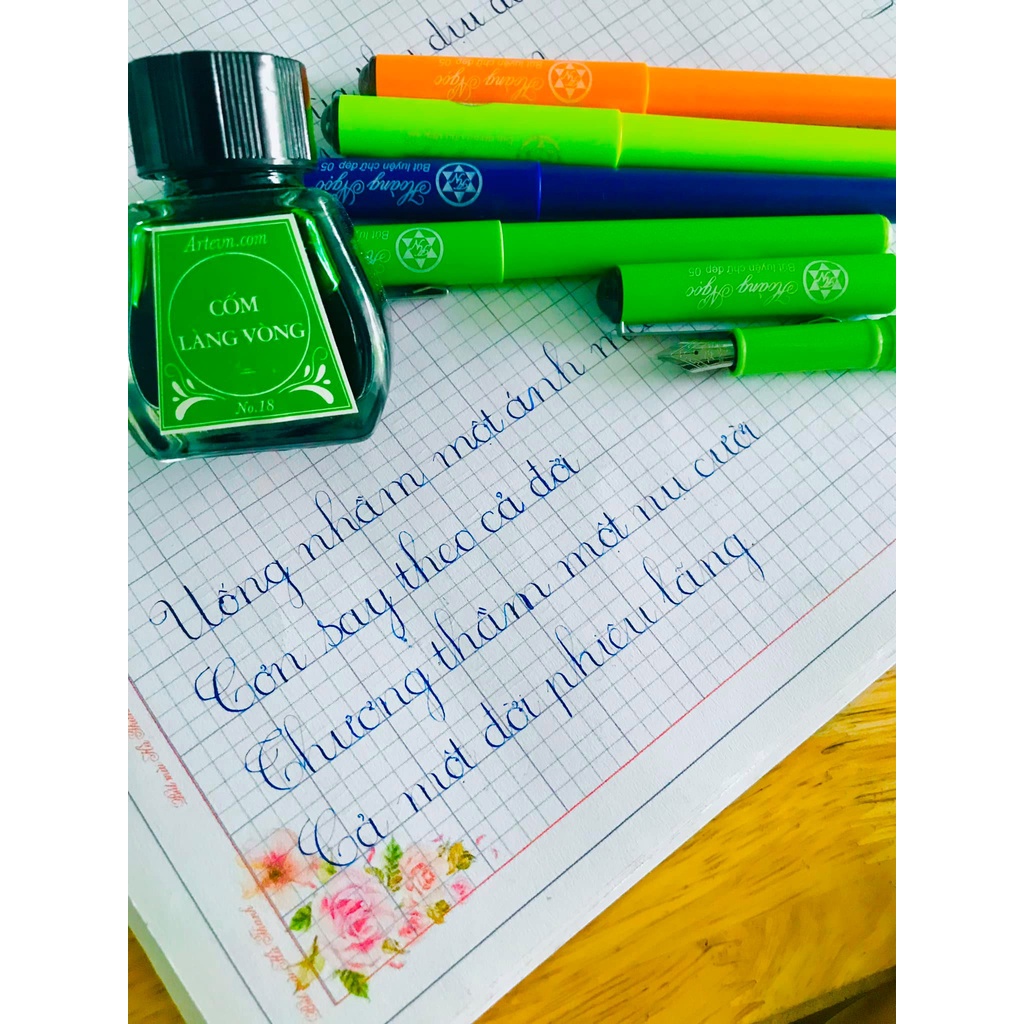 dịu
Hoàng Ngọc
Hoàng Ngọc
Bút luyện chữ đẹp 05
Hoàng Ngọc
Bút luyện chữ đẹp 05
Artevn.com
CỐM
LÀNG VÒNG
No.18
Uống nhầm một ánh
Cơn say theo cả đời
Thương thầm một nụ cười
Cả một đời phiêu lãng.